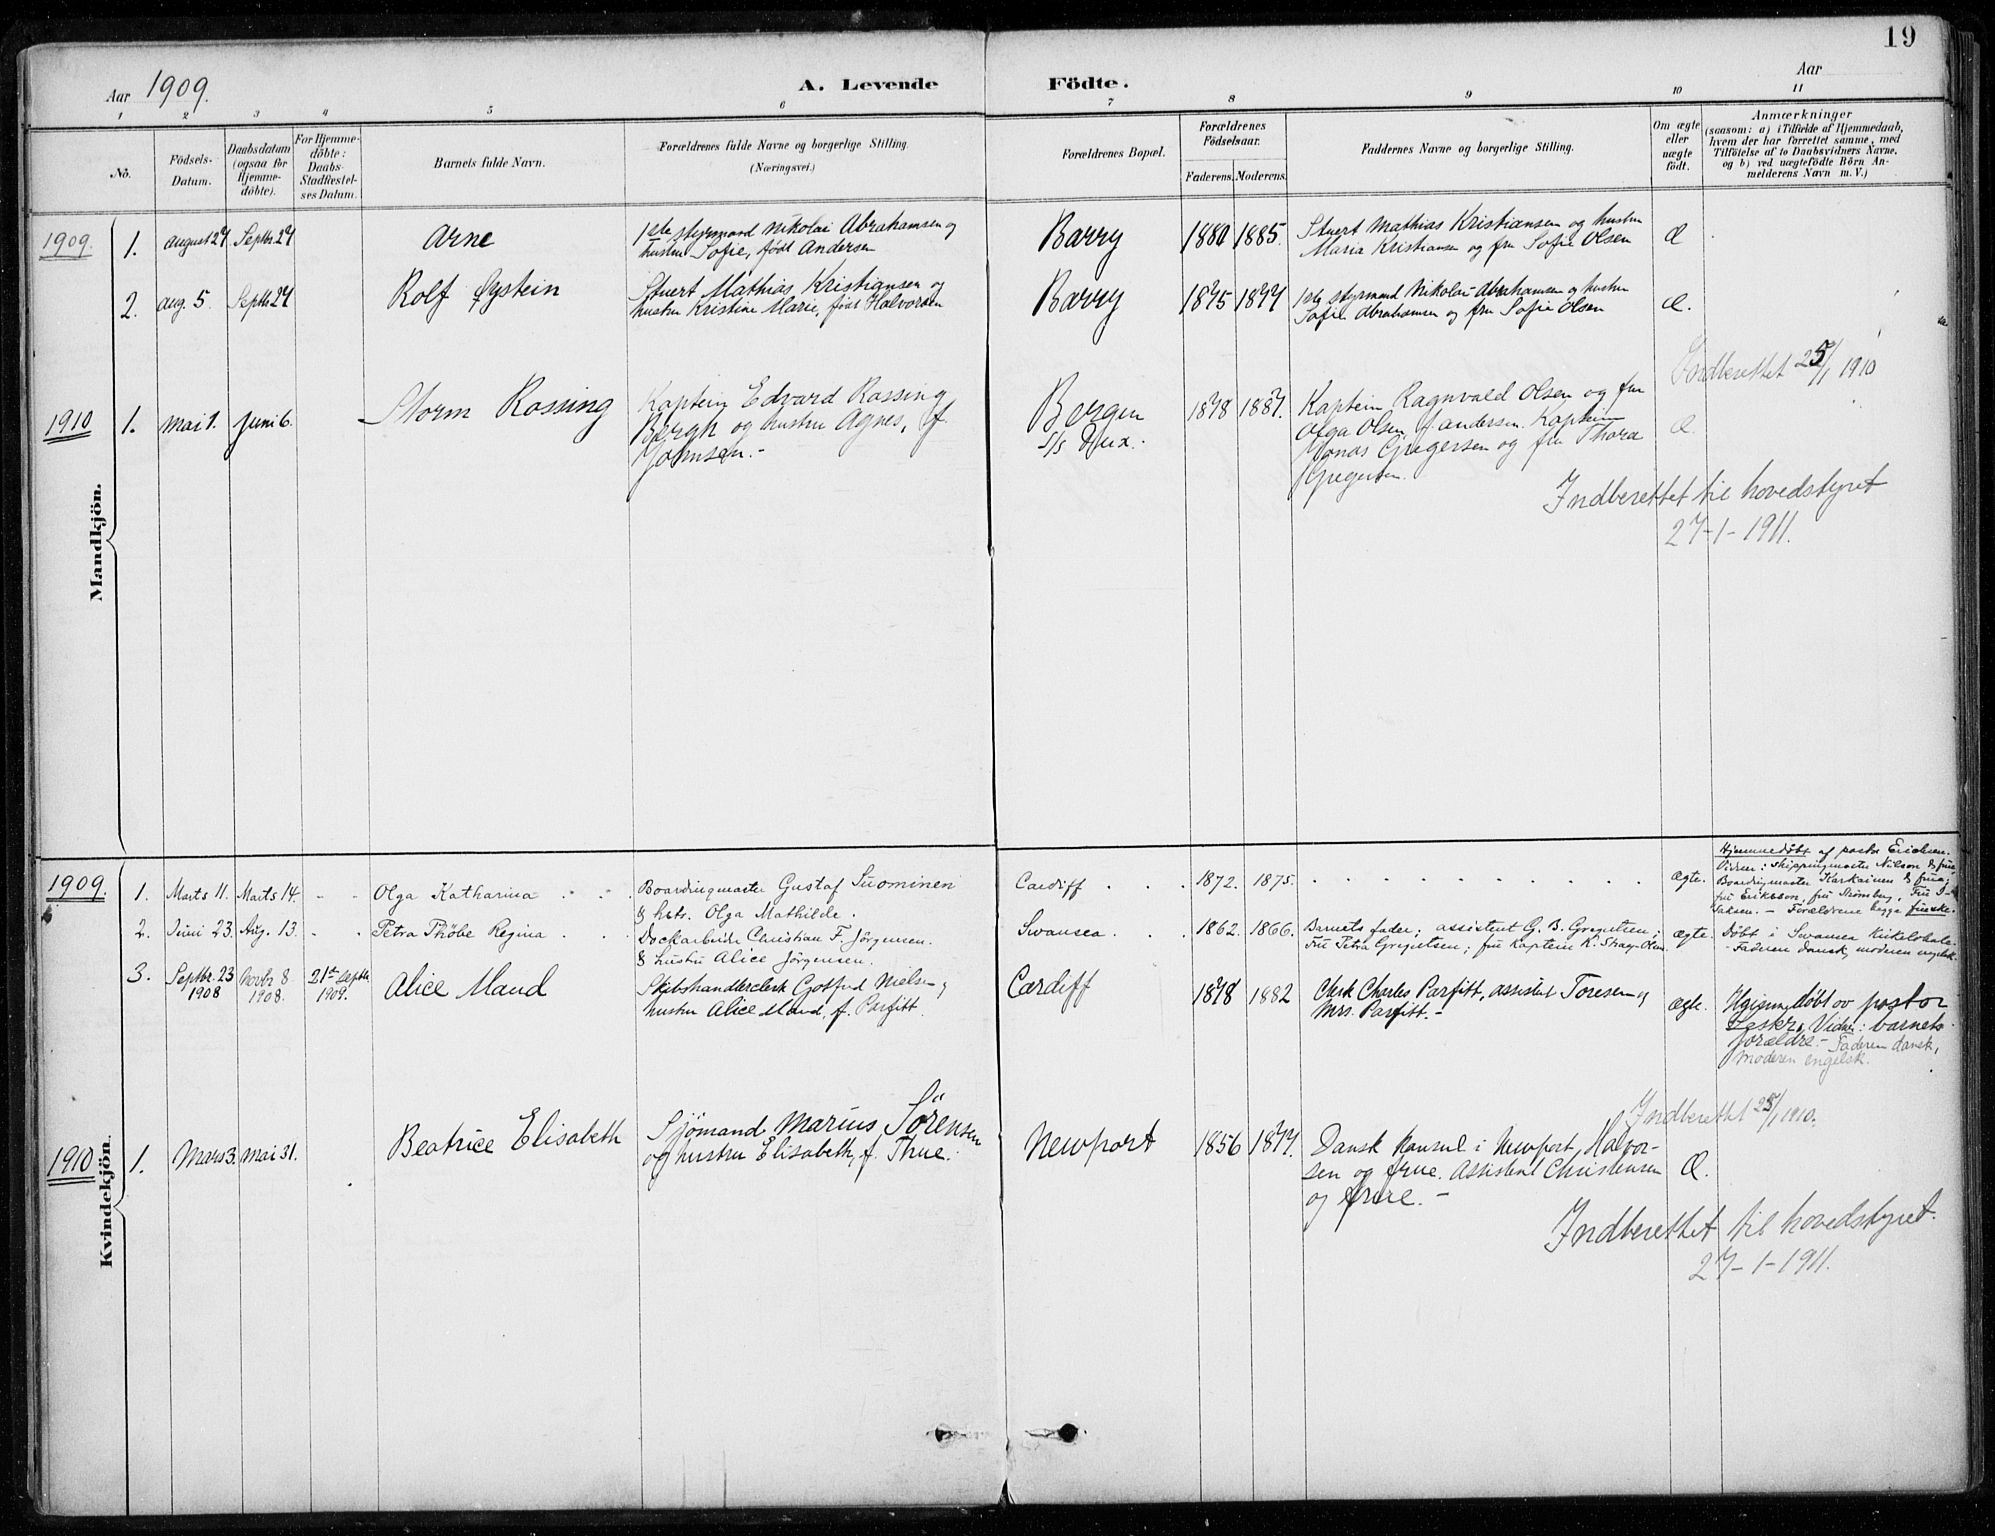 19
Aar 1909.
A. Levende Födte.
Aar
1 2 3 4 5 6 7 8 9 10 11
No.
Födsels-Datum.
Daabsdatum (ogsaa for Hjemme-döbte).
For Hjemme-döbte: Daabs-Stadfæstel-ses Datum.
Barnets fulde Navn.
Forældrenes fulde Navne og borgerlige Stilling.
(Næringsvei.)
Forældrenes Bopæl.
Forældrenes Födselsaar.
Faderens. Moderens.
Faddernes Navne og borgerlige Stilling.
Om ægte eller uægte födt.
Anmærkninger
(saasom: a) i Tilfælde af Hjemmedaab,
hvem der har forrettet samme, med
Tilföielse af to Daabsvidners Navne,
og b) ved uægtefödte Börn An-
melderens Navn m. V.)
Mandkjön.
1909. 1. august 27 Septbr. 27 Arne
1ste styrmand Nikolai Abrahamsen og
hustru Sofie, født Andersen
Barry 1880 1885.
Stuert Mathias Kristiansen og hustru
Maria Kristiansen og fru Sofie Olsen
Æ
2. aug. 5. Septbr. 27 Rolf Øystein
Stuert Mathias Kristiansen og
hustru Kristine Marie, født Halvorsen
Barry 1875 1877
1ste styrmand Nikolai Abrahamsen og hustru
Sofie Abrahamsen og fru Sofie Olsen
Æ.
Indberettet 25/1 1910
1910 1. Mai 1. Juni 6. Storm Rossing
Kaptein Edvard Rossing
Bergh og hustru Agnes, f.
Johnsen.-
Bergen
s/s Dux.
1878 1887.
Kaptein Ragnvald Olsen og fru
Olga Olsen f. Andersen. Kaptein
Jonas Gregersen og fru Thora
Gregersen.
Æ.
Indberettet til hovedstyret
27-1-1911.
Kvindekjön.
1909. 1. Marts 11. Marts 14. - - Olga Katharina
Boardingmaster Gustaf Suominen
& hstr. Olga Mathilde.
Cardiff 1872. 1875.
ægte.
Hjemmedøbt af pastor Erichsen.
Vidner: Shippingmaster Nilson & frue
Boardingmaster Karkainen & frue;
fru Eriksson, fru Strømberg, Fru
- Forældrene begge finske.
2. Juni 23. Aug. 13. - - Petra Thöbe Regina
Dockarbeider Christian F. Jörgensen.
& hustru Alice Jörgensen.
Swansea 1862. 1866.
Barnets fader; assistent G. B. Gregertsen;
Fru Petra Gregertsen; fru kaptein K. Olsen.
ægte.
Døbt i Swansea Kirkelokale
- Faderen dansk, moderen engelsk.
3. Septbr. 23 1908 Novbr 8 1908. 21st Septbr 1909. Alice Maud
Skibshandlerclerk Gotfred Nielsen og
hustru Alice Maud, f. Parfitt.
Cardiff 1878 1882
Clerk Charles Parfitt, assistent Toresen og
Mrs. Parfitt.-
ægte.
Hjemmedöbt av pastor
Vidner: barnets
forældre.- Faderen dansk,
moderen engelsk.
Indberettet 25/1 1910.
1910 1. Mars 3. Mai 31. Beatrice Elisabeth
Sjömand Marius Sörensen
og hustru Elisabeth, f. Thue.
Newport 1856 1877.
Dansk Konsul i Newport, Halvor-
sen og frue. Assistent Christensen
og frue.-
Æ.
Indberettet til hovedstyret.
27-1-1911.